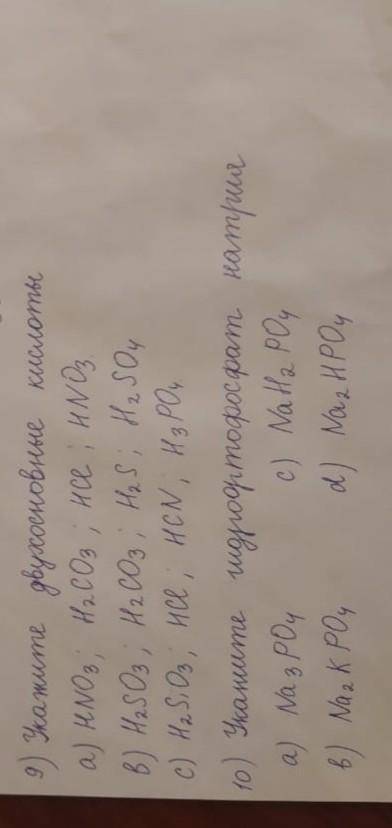 9) Укажите двухосновные кислоты
a) HNO3; H2CO3; HCl; HNO3
в) H2SO3; H2CO3; H2S; H2SO4
c) H2SiO3; HCl; HCN; H3PO4
10) Укажите гидроортофосфат натрия
a) Na3PO4 c) NaH2PO4
в) Na2KPO4 d) Na2HPO4